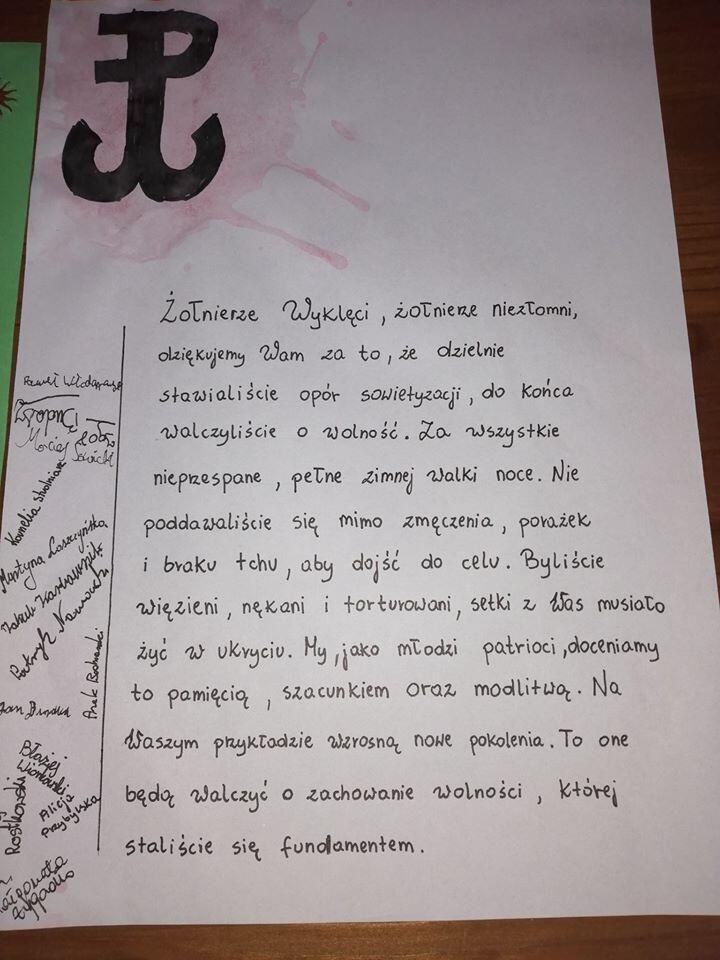 Żołnierze Wyklęci, żołnierze niezłomni,
dziękujemy Wam za to, że dzielnie
stawialiście opór sowietyzacji, do końca
walczyliście o wolność. Za wszystkie
nieprzespane, pełne zimnej walki noce. Nie
poddawaliście się mimo zmęczenia, porażek
i braku tchu, aby dojść do celu. Byliście
więzieni, nękani i torturowani, setki z Was musiało
żyć w ukryciu. My, jako młodzi patrioci, doceniamy
to pamięcią, szacunkiem oraz modlitwą. Na
Waszym przykładzie wzrosną nowe pokolenia. To one
będą walczyć o zachowanie wolności, której
staliście się fundamentem.
Paweł
Maciej
Kornelia
Martyna Łaszczyńska
Jakub
Patryk
Jan
Błażej
Alicja
Przybylska
Rostkowski